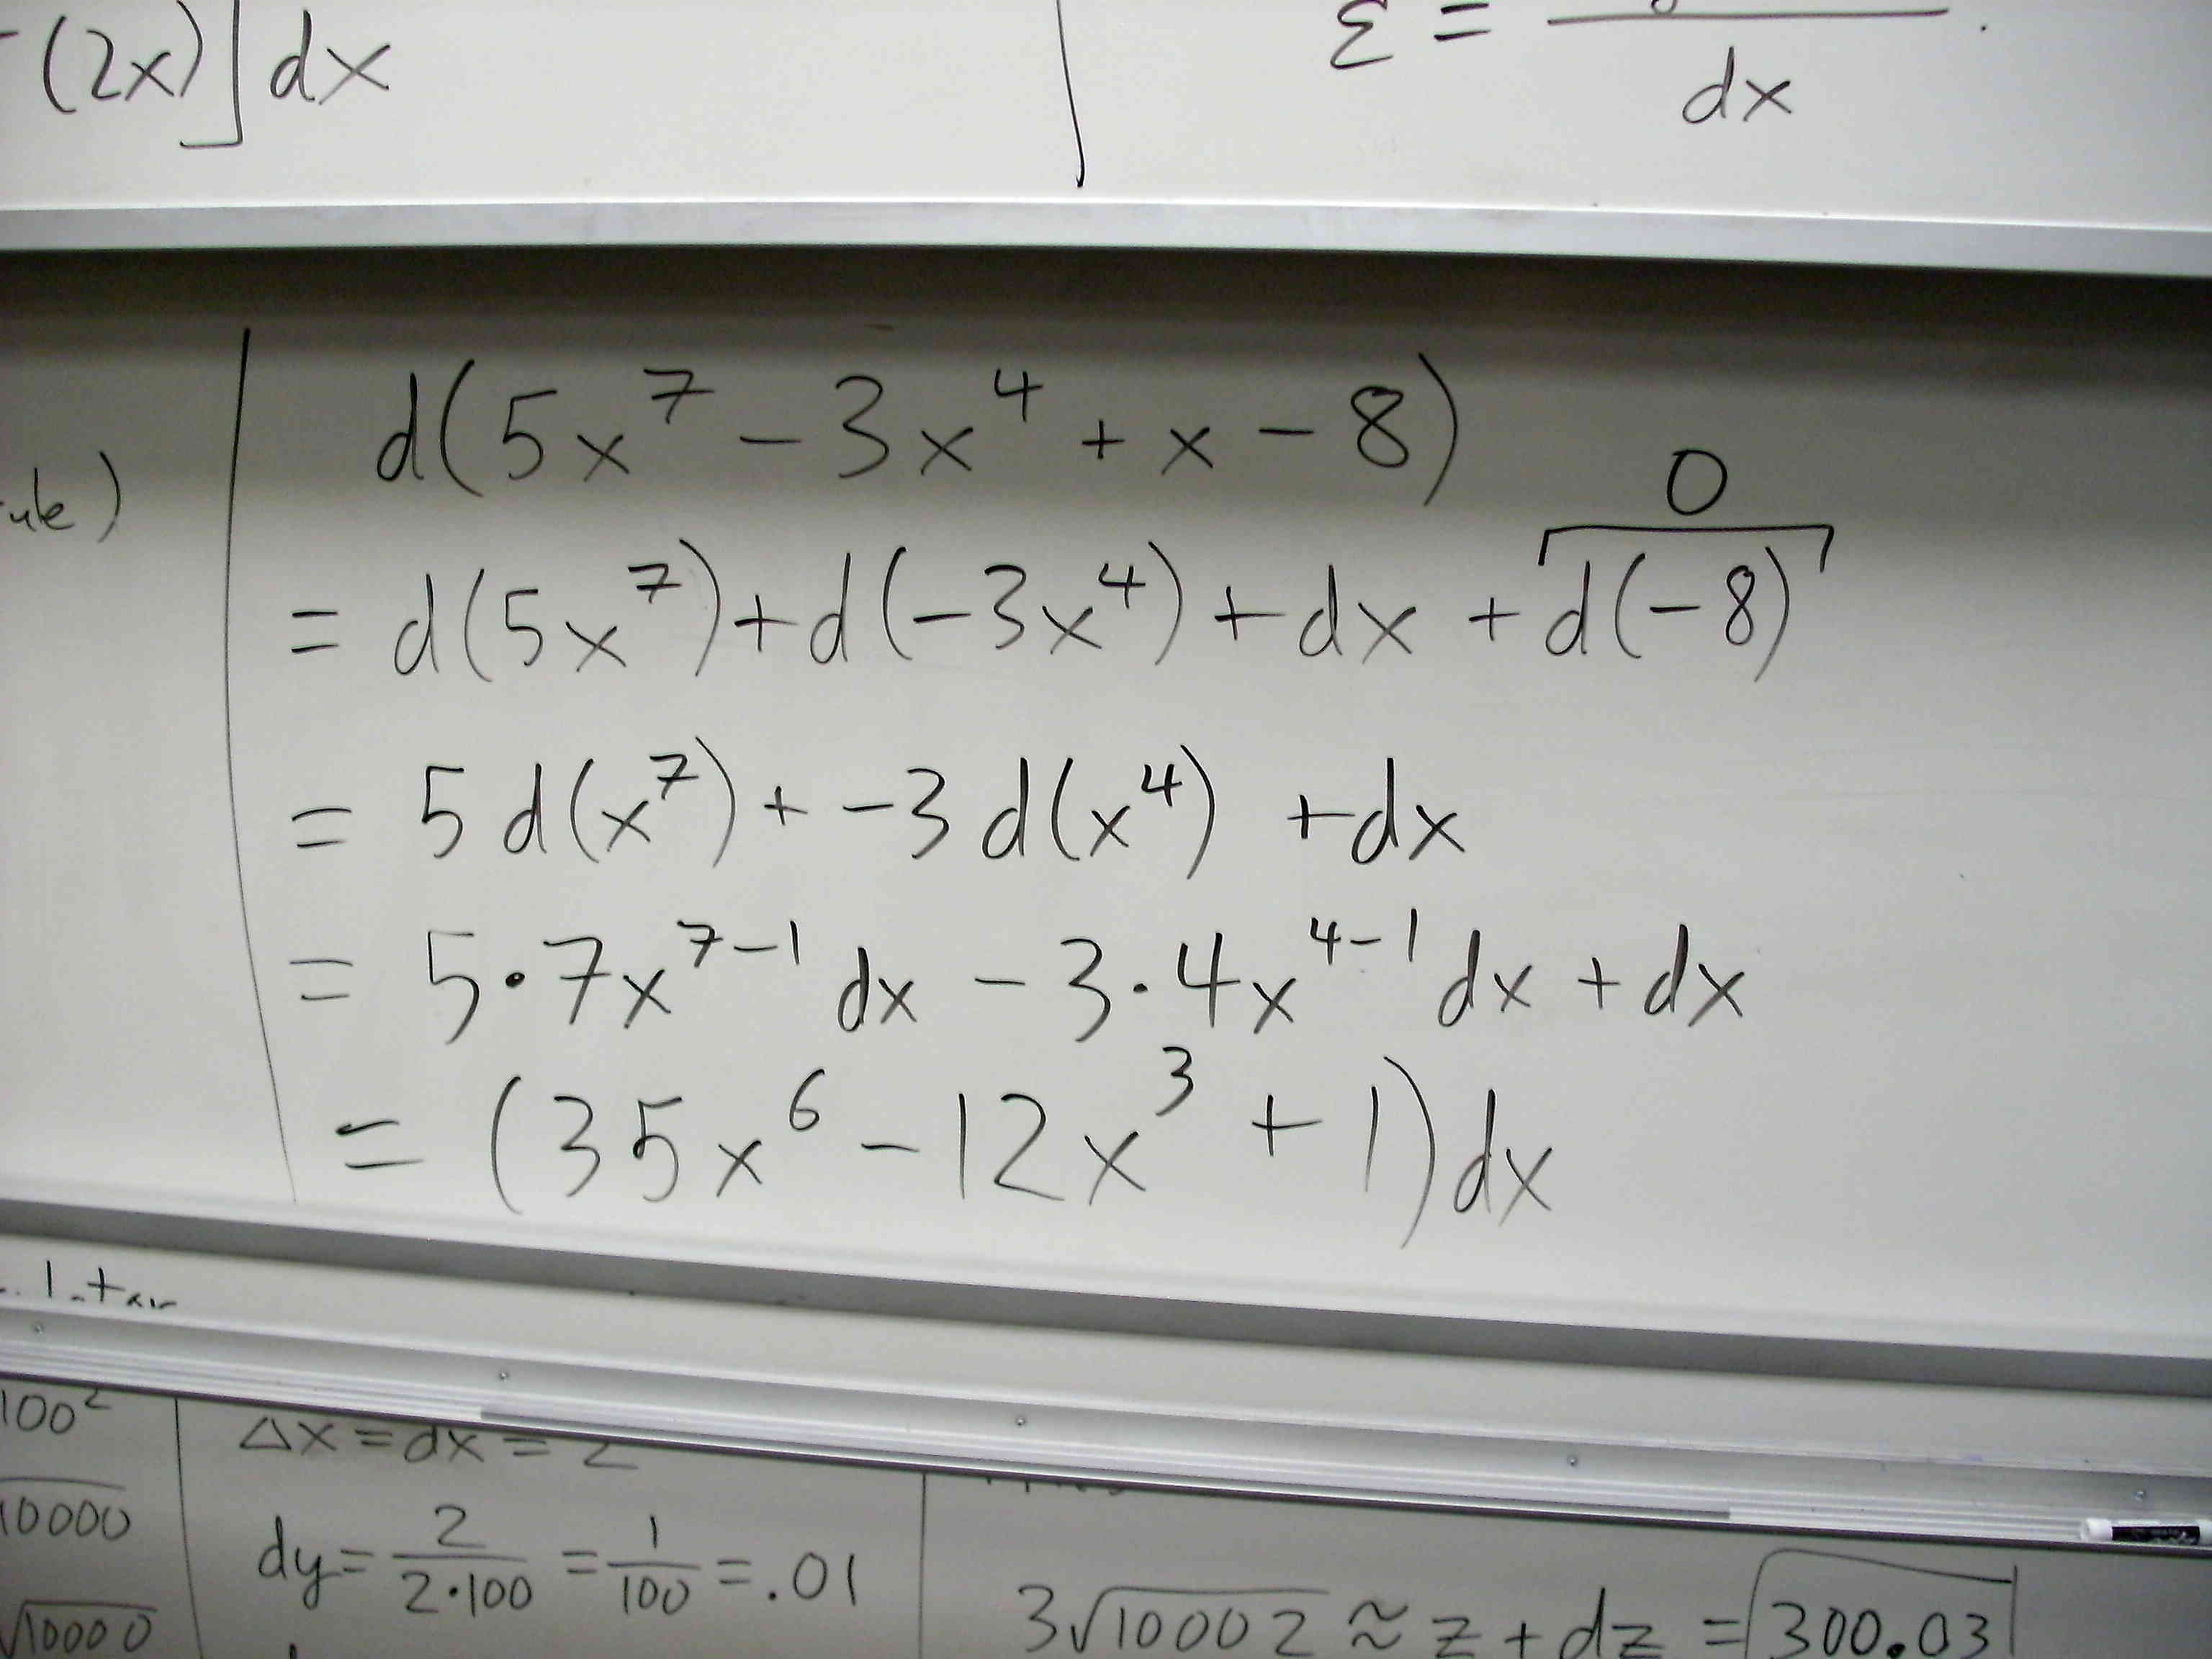 (2x)] dx
ε = dx
d(5x⁷ - 3x⁴ + x - 8)
0
= d(5x⁷) + d(-3x⁴) + dx + d(-8)
= 5 d(x⁷) + -3 d(x⁴) + dx
= 5·7x⁷⁻¹ dx - 3·4x⁴⁻¹ dx + dx
= (35x⁶ - 12x³ + 1) dx
100²
10000
√10000
Δx = dx = 2
dy = 2/2·100 = 1/100 = .01
3√10002 ≈ z + dz = 300.03